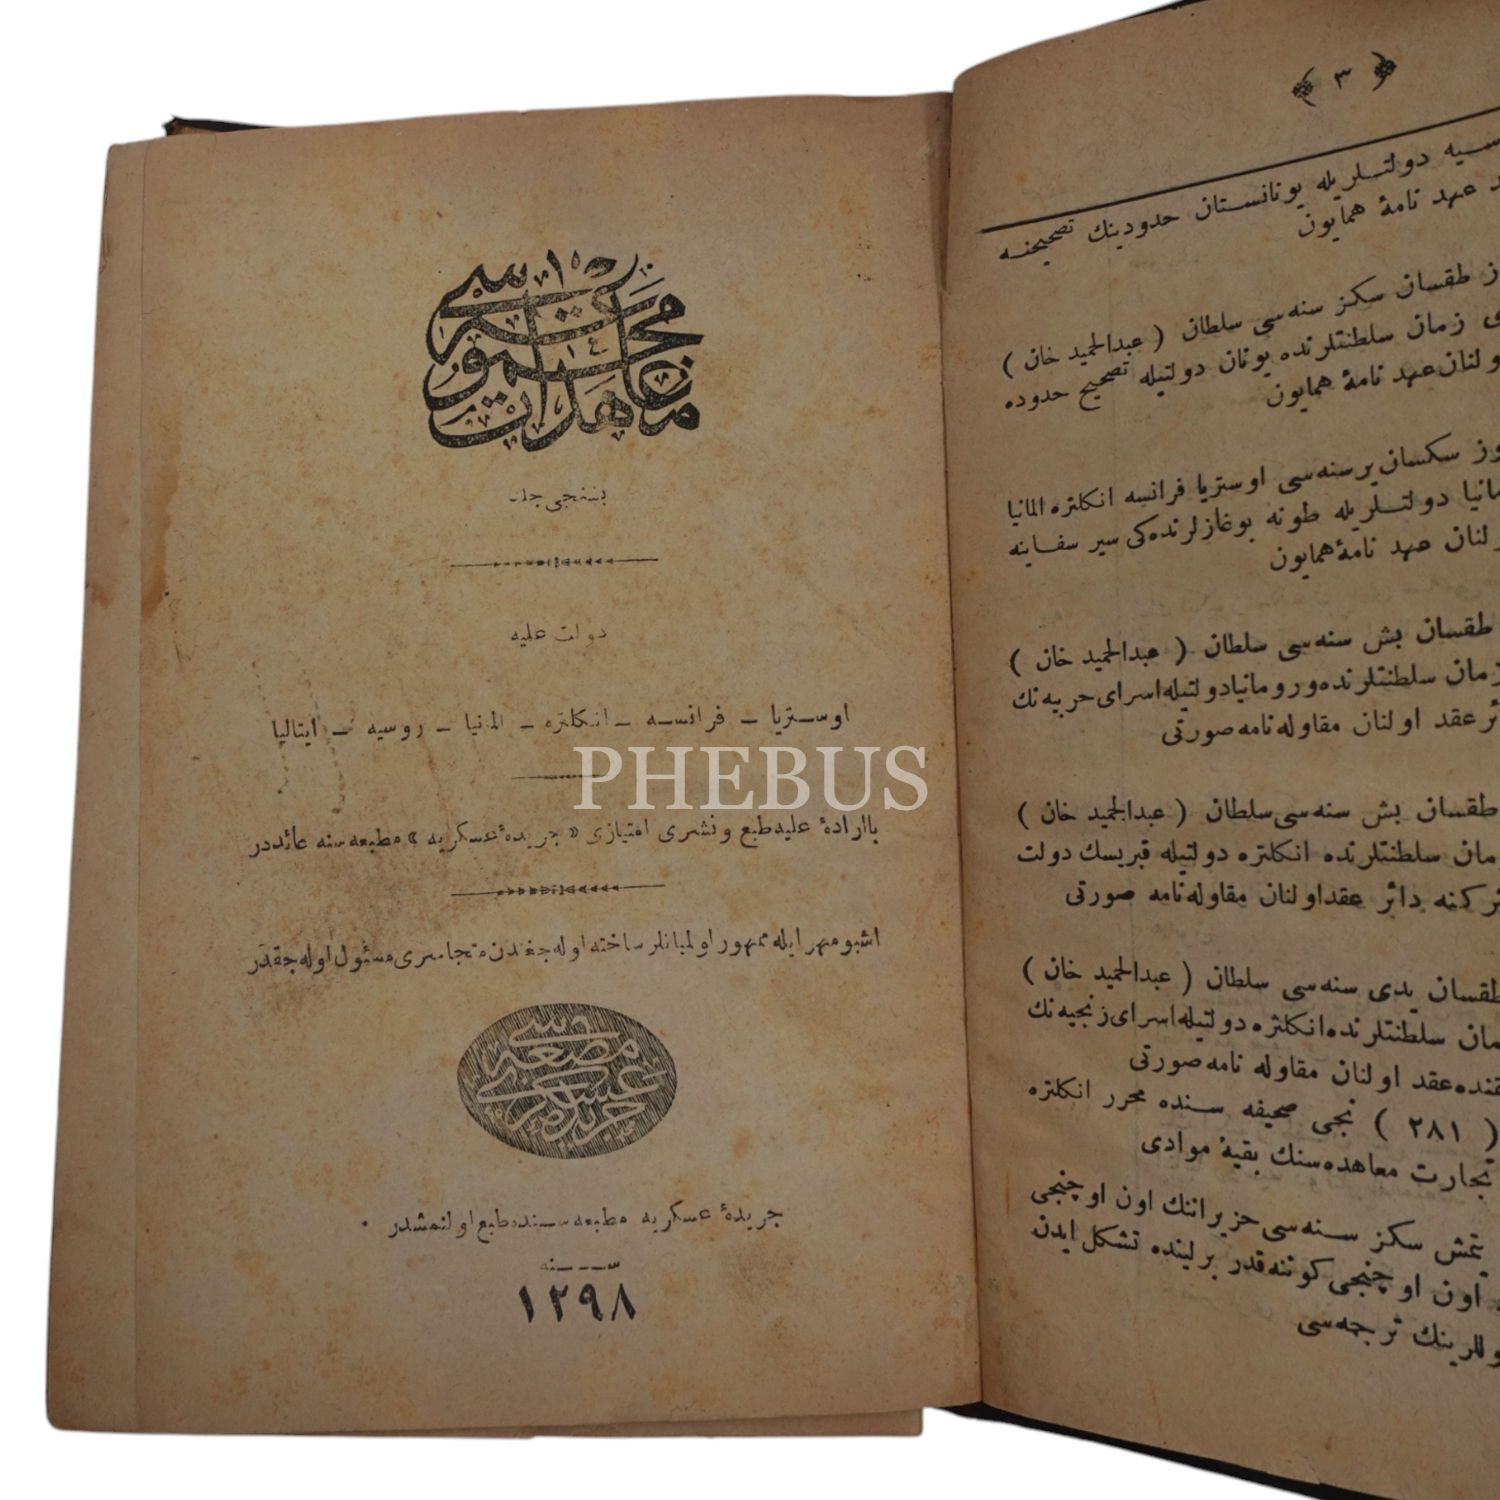 معاهدات مجموعه سی
بشنجی جلد
دولت علیه
اوستریا – فرانسه – انکلتره – المانیا – روسیه – ایتالیا
باارادهٔ علیه طبع ونشری امتیازی «جریدهٔ عسکریه» مطبعه سنه عائددر
اشبو مهر ایله تمهور اولمیانلر ساخته اوله جغندن متجاسری مسئول اوله جقدر
جریدهٔ عسکریه مطبعه سی
جریدهٔ عسکریه مطبعه سنده طبع اولنمشدر .
سنه
١٢٩٨
PHEBUS
﴿ ٣ ﴾
سیه دولتلریله یونانستان حدودینك تصحیحنه
عهد نامهٔ همایون
طقسان سکز سنه سی سلطان ( عبدالحمید خان )
زمان سلطنتلرنده یونان دولتیله تصحیح حدوده
ولنان عهد نامهٔ همایون
وز سکسان برسنه سی اوستریا فرانسه انکلتره المانیا
مانیا دولتلریله طونه بوغازلرنده کی سیر سفاینه
لنان عهد نامهٔ همایون
طقسان بش سنه سی سلطان ( عبدالحمید خان )
زمان سلطنتلرنده ورومانیادولتیله اسرای حربیه نك
ئر عقد اولنان مقاوله نامه صورتی
طقسان بش سنه سی سلطان ( عبدالحمید خان )
مان سلطنتلرنده انکلتره دولتیله قبریسك دولت
ترکنه دائر عقداولنان مقاوله نامه صورتی
طقسان یدی سنه سی سلطان ( عبدالحمید خان )
مان سلطنتلرنده انکلتره دولتیله اسرای زنجیه نك
قنده عقد اولنان مقاوله نامه صورتی
( ٢٨١ ) نجی صحیفه سنده محرر انکلتره
تجارت معاهده سنك بقیهٔ موادی
یتمش سکز سنه سی حزیراننك اون اوچنجی
اون اوچنجی کوننه قدر برلینده تشکل ایدن
وللرینك ترجمه سی